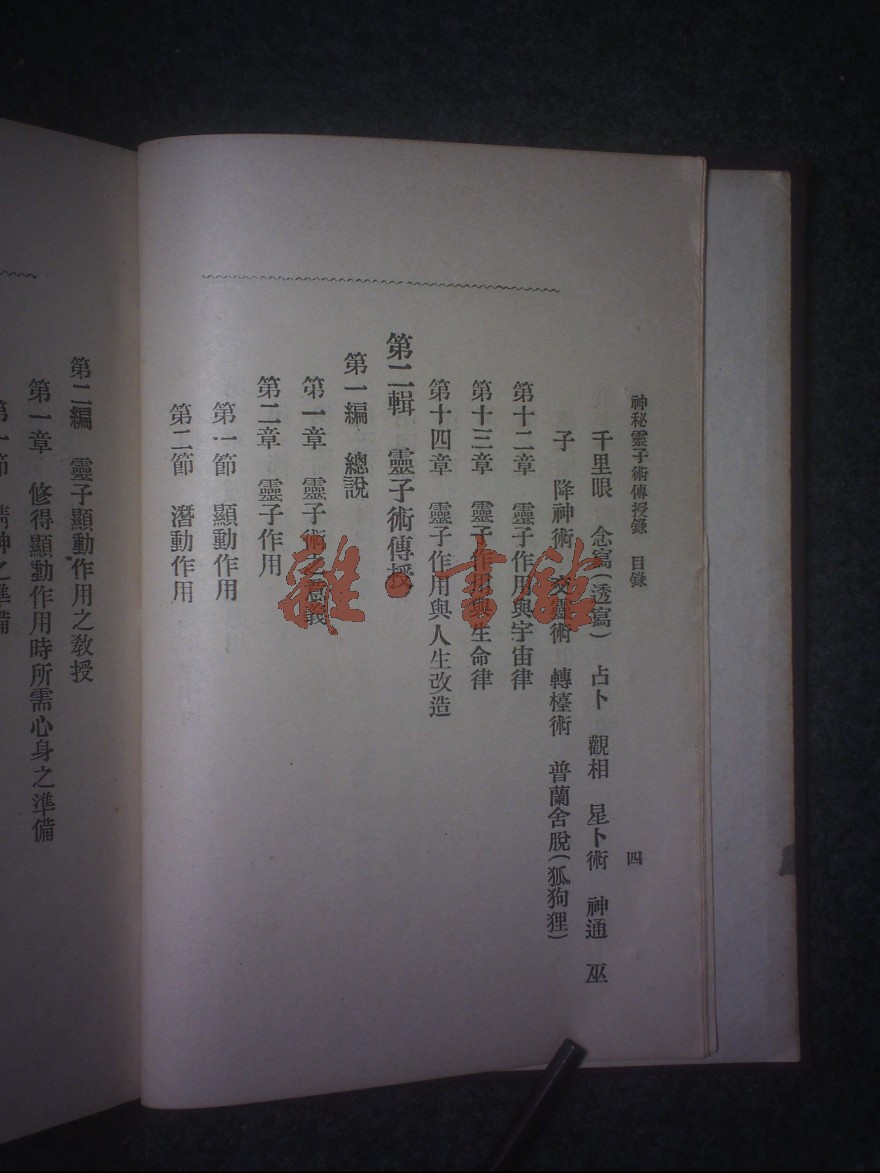 神秘靈子術傳授錄 目錄 四
千里眼 念寫(透寫) 占卜 觀相 星卜術 神通 巫
子 降神術 交靈術 轉檯術 普蘭舍脫(狐狗狸)
第十二章 靈子作用與宇宙律
第十三章 靈子作用與生命律
第十四章 靈子作用與人生改造
第二輯 靈子術傳授
第一編 總說
第一章 靈子術之意義
第二章 靈子作用
第一節 顯動作用
第二節 潛動作用
第二編 靈子顯動作用之教授
第一章 修得顯動作用時所需心身之準備
第一節 精神之準備
雜·書館